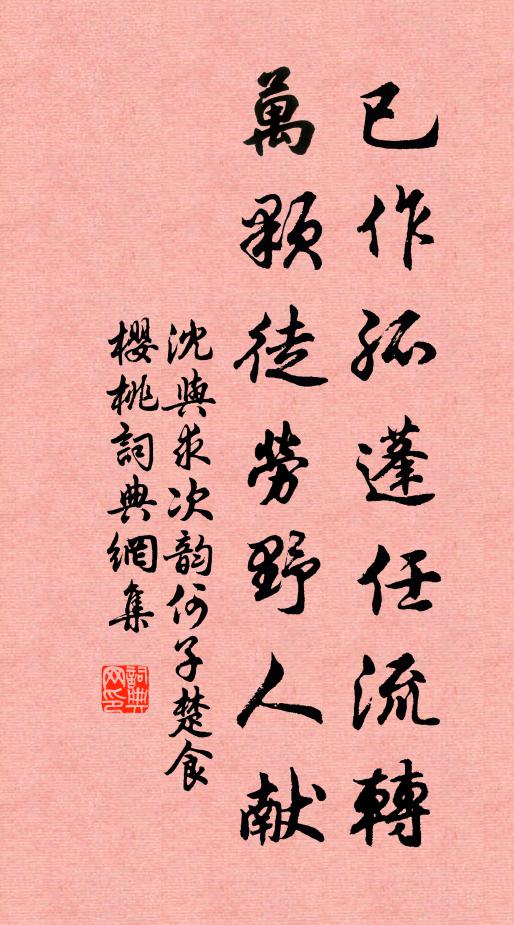 已作孤蓬任流轉
萬顆徒勞野人献
沈與求次韵何子楚食
櫻桃詞典網集
詞典
网印